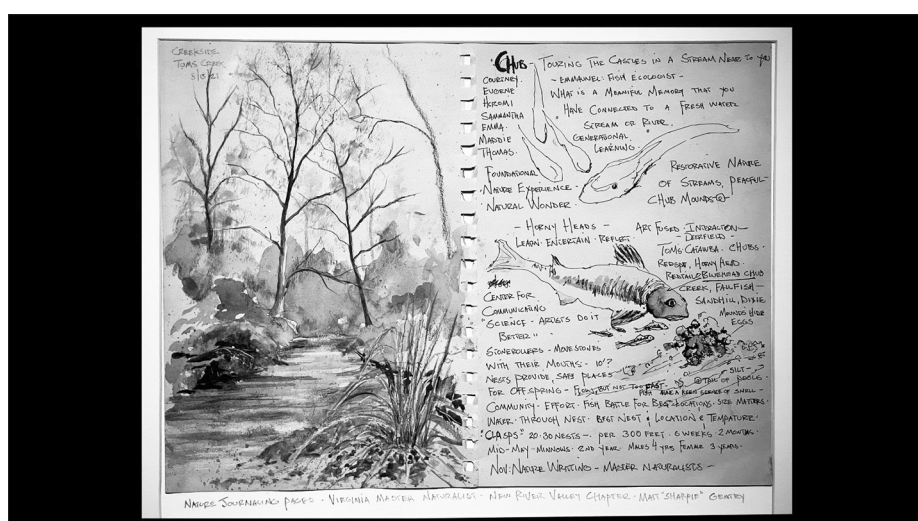 CREEKSIDE
TOMS CREEK
5/8/21
CHUB - TOURING THE CASTLES IN A STREAM NEAR TO YOU
~ EMMANUEL: FISH ECOLOGIST -
WHAT IS A MEANIFUL MEMORY THAT YOU
HAVE CONNECTED TO A FRESH WATER
STREAM OR RIVER.
GENERATIONAL
LEARNING
COURTNEY.
EUGENE
HIROMI
SAMMANTHA
EMMA.
MADDIE
THOMAS.
FOUNDATIONAL
NATURE EXPERIENCE.
NATURAL WONDER.
RESTORATIVE NATURE
OF STREAMS, PEACFUL-
CHUB MOUNDS
- HORNY HEADS -
LEARN. ENTERTAIN. REFLECT.
ART FUSED INTERACTION-
- DEERFIELD -
TOMS. CATAWBA. CHUBS.
REDSIDE, HORNY HEAD.
REDTAIL & BLUEHEAD CHUB
CREEK, FALLFISH-
SANDHILL, DIXIE
MOUNDS HIDE
EGGS
CENTER FOR
COMMUNICATING
"SCIENCE - ARTISTS DO IT
BETTER"
STONEROLLERS - MOVE STONES
WITH THEIR MOUTHS. 10'?
NESTS PROVIDE, SAFE PLACES
SILT-
FOR OFFSPRING - FLOWS, BUT NOT TOO FAST- TAIL OF POOLS.
FISH HAVE A KEEN SCIENCE OF SMELL-
COMMUNITY. EFFORT. FISH BATTLE FOR BEST LOCATIONS. SIZE MATTERS.
WATER THROUGH NEST. BEST NEST & LOCATION & TEMPATURE.
"CLASPS" 20-30 NESTS - PER 300 FEET. 6 WEEKS. 2 MONTHS.
MID-MAY-MINNOWS. 2ND YEAR MALES 4 YRS FEMALE 3 YEARS.
NOV: NATURE WRITING - MASTER NATURALISTS -
NATURE JOURNALING PAGES - VIRGINIA MASTER NATURALIST - NEW RIVER VALLEY CHAPTER - MATT "SHARPIE" GENTRY